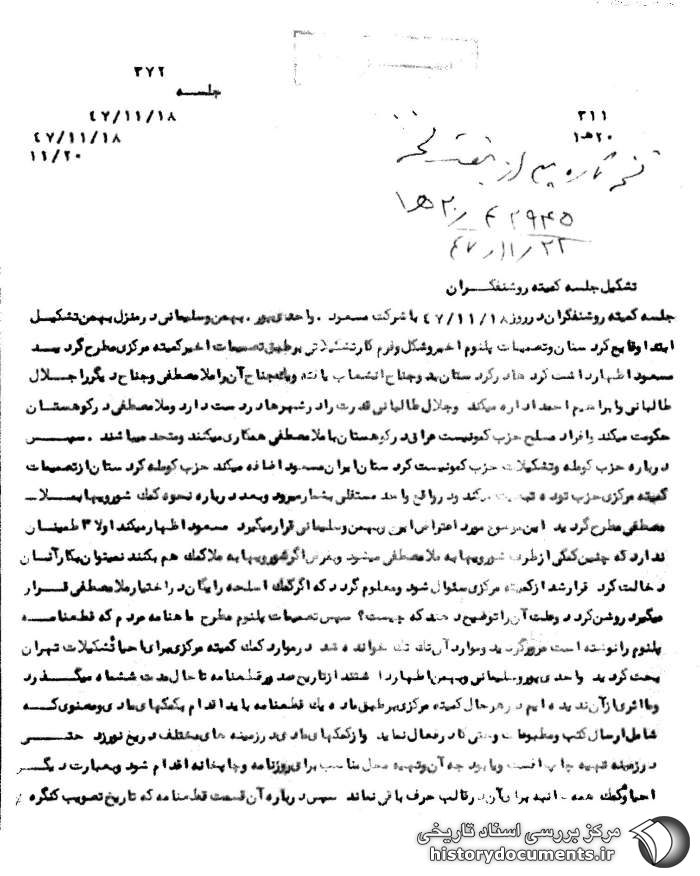 ۳۷۲
جلسه
۴۷/۱۱/۱۸
۴۷/۱۱/۱۸
۱۱/۲۰
۳۱۱
۲۰ه۱
۴۷/۱۱/۲۲
تشکیل جلسه کمیته روشنفکران
جلسه کمیته روشنفکران در روز ۴۷/۱۱/۱۸ با شرکت مسعود . واحدی پور . بهمن و سلیمانی در منزل بهمن تشکیل
ابتدا وقایع کردستان و تصمیمات پلنوم اخیر و شکل و فرم کار تشکیلاتی بر طبق تصمیمات اخیر کمیته مرکزی مطرح گردید
مسعود اظهار داشت کردها در کردستان بدو جناح انشعاب یافته و یک جناح آن را ملا مصطفی و جناح دیگر را جلال
طالبانی و ابراهیم احمد اداره میکند و جلال طالبانی قدرت را در شهرها در دست دارد و ملا مصطفی در کوهستان
حکومت میکند و افراد مسلح حزب کمونیست عراق در کوهستان با ملا مصطفی همکاری میکنند و متحد میباشند . سپس
درباره حزب کومله و تشکیلات حزب کمونیست کردستان ایران مسعود اضافه میکند حزب کومله کردستان از تصمیمات
کمیته مرکزی حزب توده تبعیت میکند و در واقع واحد مستقلی بشمار میرود و بعد درباره نحوه کمک شورویها بملا
مصطفی مطرح گردید این موضوع مورد اعتراض و بهمن و سلیمانی قرار میگیرد مسعود اظهار میکند اولا اطمینان
ندارد که چنین کمکی از طرف شورویها به ملا مصطفی میشود و بفرض اگر شورویها به ملا کمک هم بکنند نمیتوان بکار آنان
دخالت کرد قرار شد از کمیته مرکزی سئوال شود و معلوم گردد که اگر کمک اسلحه رایگان در اختیار ملا مصطفی قرار
میگیرد روشن کردد و علت آن را توضیح دهند که چیست؟ سپس تصمیمات پلنوم مطرح ماهنامه مردم که قطعنامه
پلنوم را نوشته است مرور گردید و موارد آن تک تک خوانده شد در موارد کمک کمیته مرکزی برای احیاء تشکیلات تهران
بحث گردید واحدی پور و سلیمانی و بهمن اظهار داشتند از تاریخ صدور قطعنامه تا حال مدت ششماه میگذرد
و ما اثری از آن ندیده ایم در هر حال کمیته مرکزی بر طبق ماده یک قطعنامه باید اقدام بکمکهای مادی و معنوی که
شامل ارسال کتب و مطبوعات و حتی کادر فعال نماید و از کمکهای مادی در زمینه های مختلف دریغ نورزد حتی
در زمینه تهیه چاپ افست و یا بودجه آن و تهیه محل مناسب برای روزنامه و چاپخانه اقدام شود و بعبارت دیگر
احیاء و کمک همه جانبه در قالب حرف باقی نماند سپس درباره آن قسمت قطعنامه که تاریخ تصویب کنگره
مرکز بررسی اسناد تاریخی
historydocuments.ir